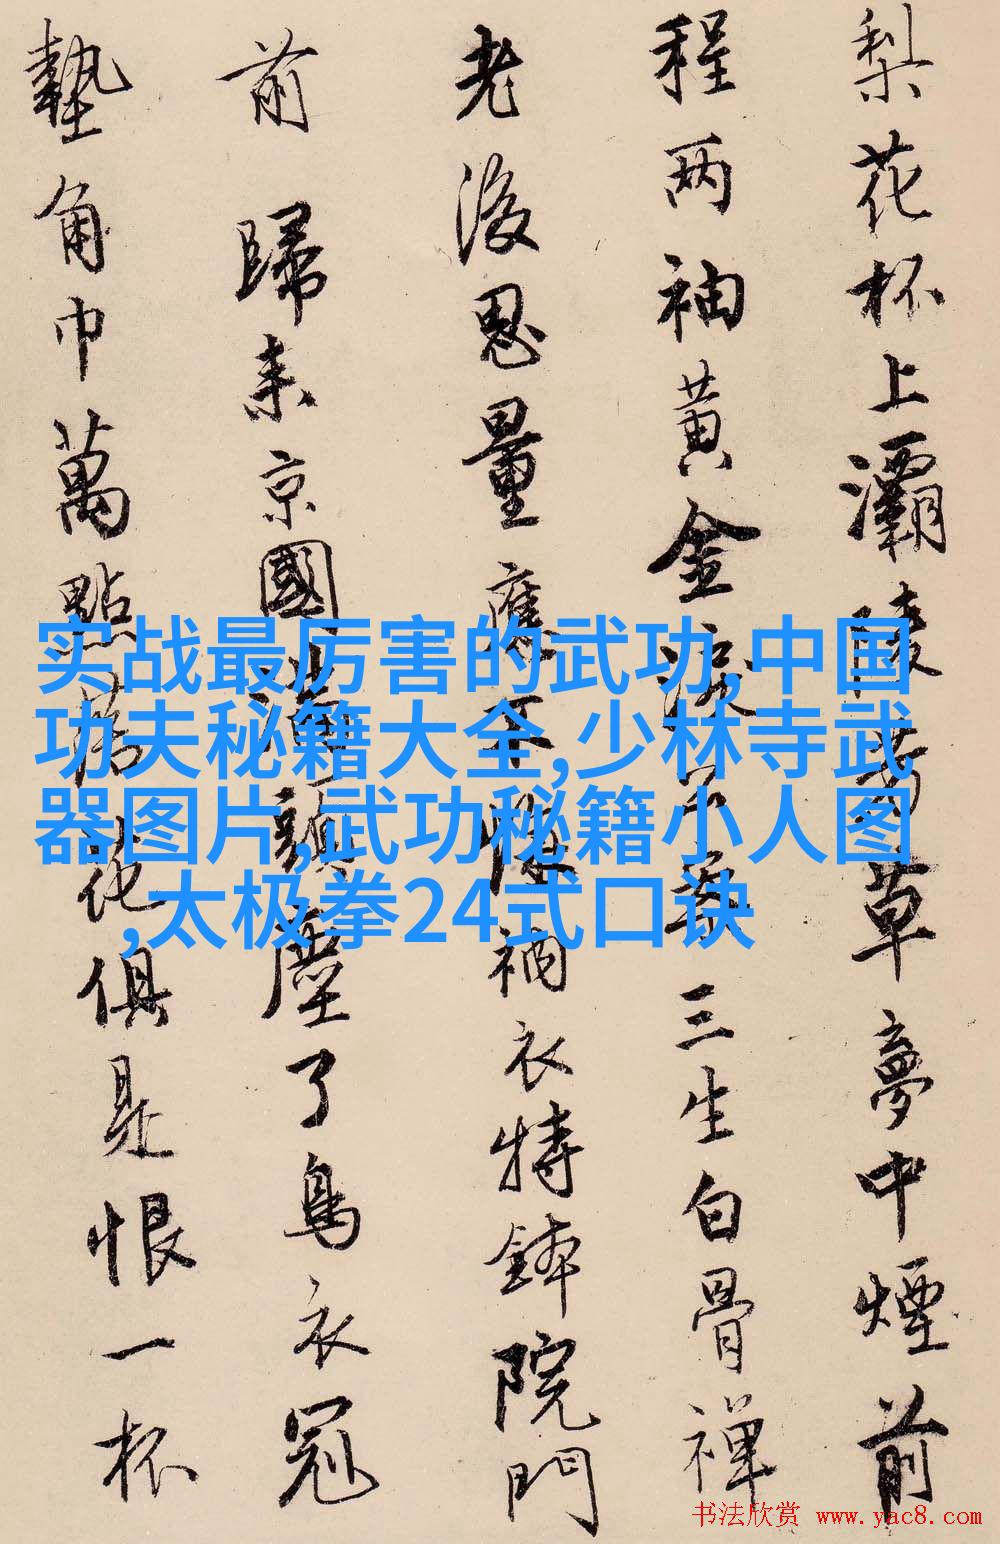 梨花杯上灞陵芳草夢中煙前
程两袖黄金淚公案三生白骨禅
老後思量應不悔衲衣持鉢院門
前 歸来京國塵了烏衣冠
墊角巾萬點落花俱是恨一杯
实战最厉害的武功,中国
功夫秘籍大全,少林寺武
器图片,武功秘籍小人图
,太极拳24式口诀
书法欣赏 www.yac8.com